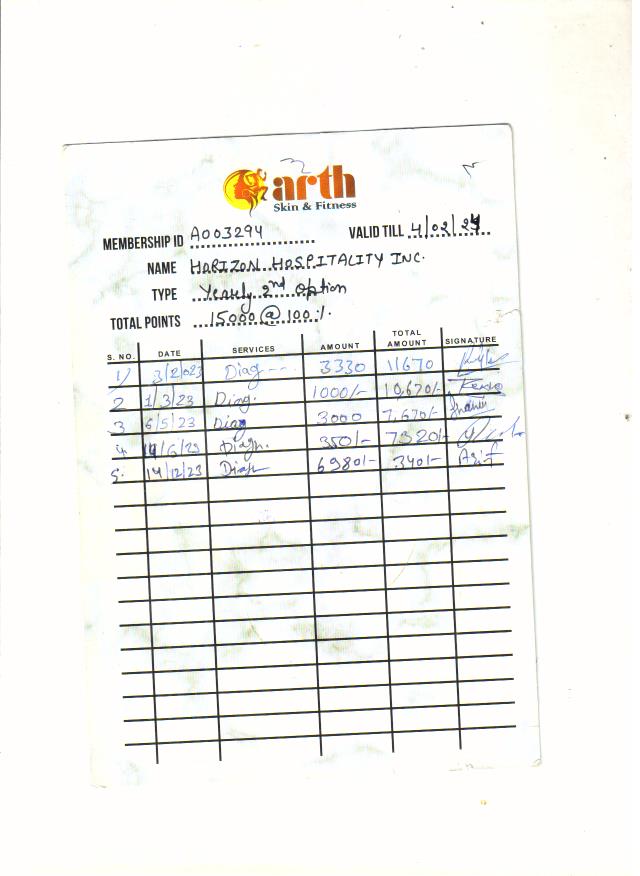 arth
Skin & Fitness
MEMBERSHIP ID A003294 VALID TILL 4/02/24
NAME HORIZON HOSPITALITY INC.
TYPE Yearly 2nd Option
TOTAL POINTS 15000 @ 100%.
S. NO. DATE SERVICES AMOUNT TOTAL AMOUNT SIGNATURE
1) 3/2/023 Diag--- 3330 11670
2 1/3/23 Diag. 1000/- 10,670/-
3 6/5/23 Diag 3000 7,670/-
4. 14/6/23 Diagn. 350/- 7320/-
5. 14/12/23 Diag 6980/- 340/- Asif